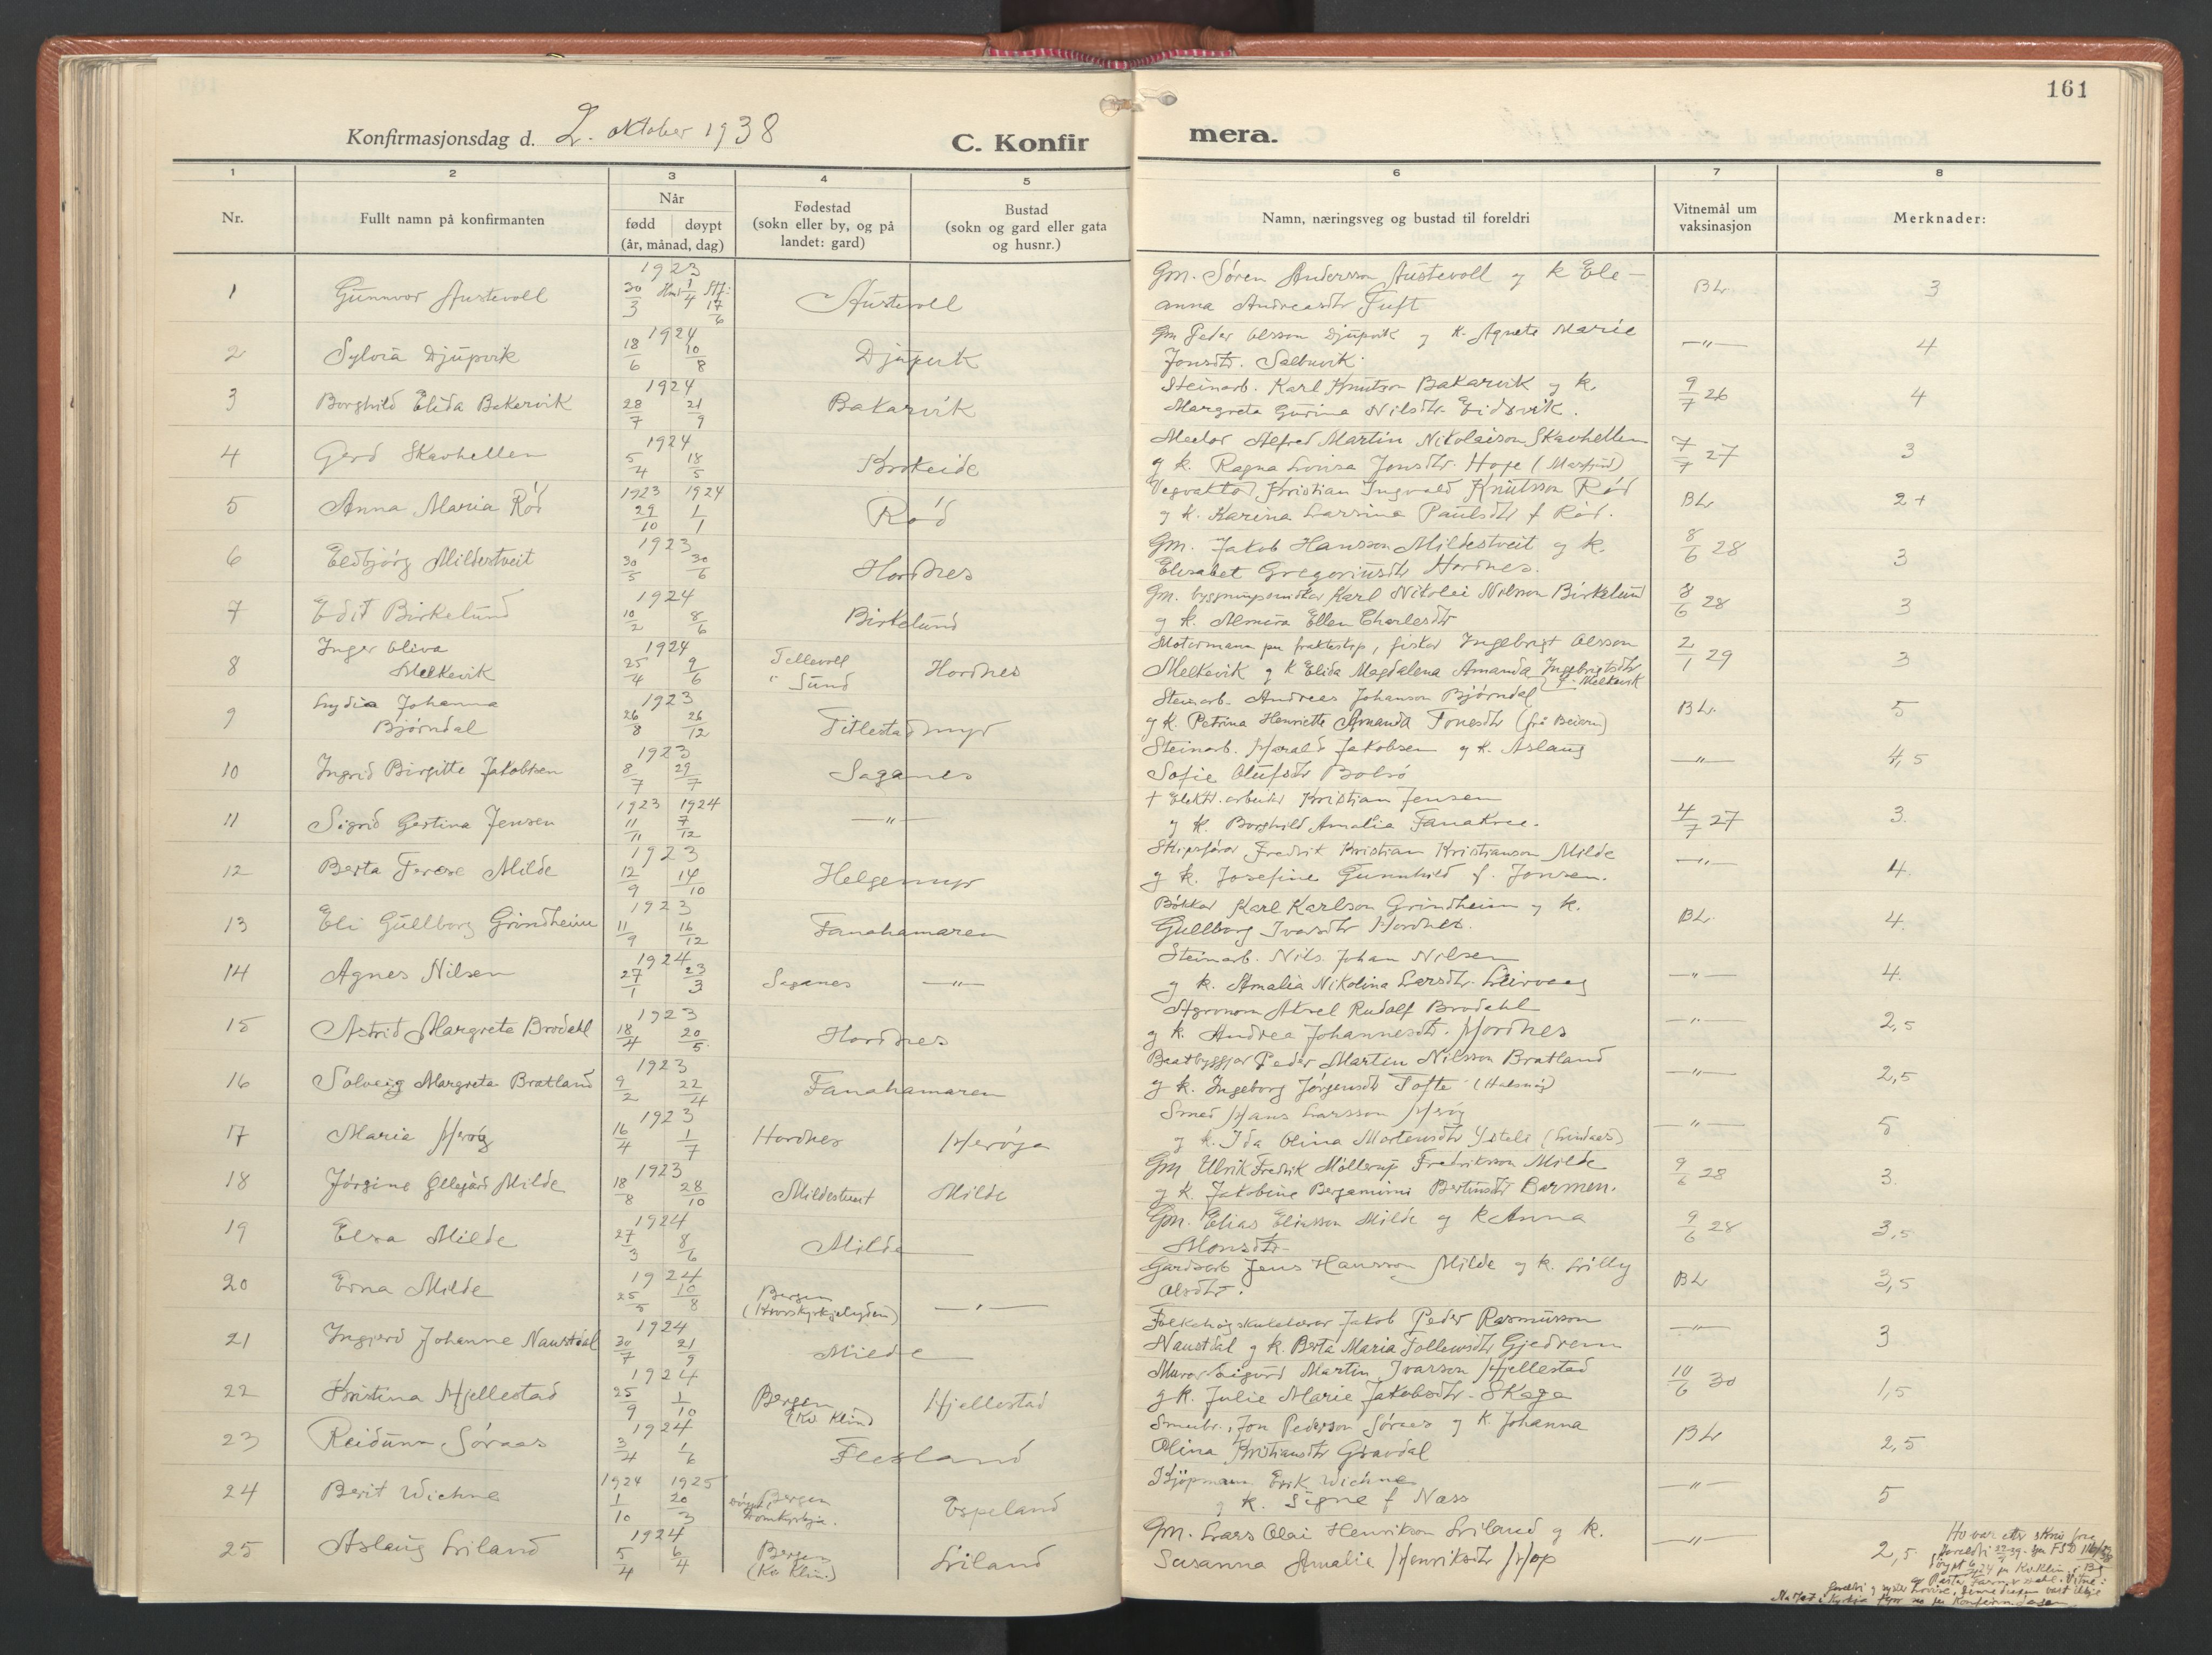 161
Konfirmasjonsdag d. 2. oktober 1938
C. Konfirmera.
1 2 3 4 5 6 7 8
Nr. Fullt namn på konfirmanten Når fødd døypt (år, månad, dag) Fødestad (sokn eller by, og på landet: gard) Bustad (sokn og gard eller gata og husnr.) Namn, næringsveg og bustad til foreldri Vitnemål um vaksinasjon Merknader:
1 Gunnvor Austevoll 1923 30/3 17/6 Austevoll Gm. Søren Andersson Austevoll og k Ele-
anna Andreasdtr Tuft BL. 3
2 Sylvia Djupvik 1924 18/6 10/8 Djupvik Gm Peder Olsson Djupvik og k. Agnete Marie
Jonsdtr. Salbuvik. —"— 4
3 Borghild Elida Bakarvik 1924 28/7 21/9 Bakarvik Steinarb. Karl Knutson Bakarvik og k.
Margreta Gurina Nilsdtr. Eidsvik. 9/7 26 4
4 Gerd Skarhellen 1924 5/4 18/5 Krokeide Alfred Martin Nikolaison Skarhellen
og k. Ragna Lovisa Jonsdtr. Hope 7/7 27 3
5 Anna Maria Rød 1923 1924 29/10 1/1 Rød Vegvaktar Kristian Ingvald Knutsson Rød
og k. Karina Larsina Paulsdtr f Rød. BL 2+
6 Eldbjørg Mildestveit 1923 30/5 30/6 Hordnes Gm. Jakob Hansson Mildestveit og k.
Elisabet Gregoriusdtr Hordnes. 8/6 28 3
7 Edit Birkelund 1924 10/2 8/6 Birkelund Gm. byggningsmstar Karl Nikolai Nilsson Birkelund
og k. Almira Ellen Charlesdtr 8/6 28 3
8 Inger Oliva
Melkevik 1924 25/4 9/6 Tellevoll
" Sund Hordnes Motormann på frakteskip, fiskar Ingebrigt Olsson
Melkevik og k Elida Magdalena Amanda Ingebrigtsdtr
f. Melkevik 2/1 29 3
9 Lydia Johanna
Bjørndal 1923 26/8 26/12 Titlestadmyr Steinarb. Andreas Johanson Bjørndal
og k. Petrina Henriette Amanda Tonesdtr (frå Beiarn) BL. 5
10 Ingrid Birgitte Jakobsen 1923 8/7 29/7 Saganes Steinarb. Harald Jakobsen og k. Aslaug
Sofie Olufsdtr Bolsø —"— 4,5
11 Sigrid Gertina Jensen 1923 1924 11/11 7/12 —"— + Elektr. arbeidar Kristian Jensen
og k. Borghild Amalia Fanakree. 4/7 27 3.
12 Berta Terese Milde 1923 12/9 14/10 Helgemyr Skipsførar Fredrik Kristian Kristianson Milde
og k. Josefine Gunnhild f. Jonsen. —"— 4.
13 Eli Gullborg Grindheim 1923 11/9 16/12 Fanahamaren Bøkkar Karl Karlson Grindheim og k.
Gullborg Ivarsdtr Hordnes. BL. 4.
14 Agnes Nilsen 1924 27/1 23/3 Saganes —"— Steinarb. Nils Johan Nilsen
og k. Amalia Nikolina Larsdtr. Leirvaag —"— 4.
15 Astrid Margrete Brodahl 1923 18/4 20/5. Hordnes Agronom Aksel Rudolf Brodahl
og k. Andrea Johannesdtr. Hordnes —"— 2,5
16 Solveig Margreta Bratland 1923 9/2 22/4 Fanahamaren Baatbyggjar Peder Martin Nilsson Bratland
og k. Ingeborg Jørgensdtr Tofte (Halsnøy) —"— 2,5
17 Maria Herøy 1923 16/4 1/7 Hordnes Herøya Smed Hans Larsson Herøy
og k. Ida Olina Mortensdtr (Lindaas) —"— 5
18 Jørgine Ollegård Milde 1923 18/8 28/10 Mildestveit Milde Gm Ulrik Fredrik Møllerup Fredrikson Milde
og k. Jakobine Bergamine Bertinsdtr Barmen. 9/6 28 3.
19 Elsa Milde 1924 27/3 8/6 Milde Gm. Elias Eliasson Milde og k Anna
Monsdtr 9/6 28 3,5
20 Erna Milde 1924 25/5 10/8 Bergen
(Krosskyrkjelyden) —"— Gardsarb Jens Hansson Milde og k. Lilly
Olsdtr. BL 3,5
21 Ingjerd Johanne Naustdal 1924 30/7 21/9 Milde Folkehøgskulelærar Jakob Peder Rasmusson
Naustdal og k. Berta Maria Tollewsdtr Gjedrem —"— 3
22 Kristina Hjellestad 1924 25/9 1/10 Bergen
(Kv. Klin) Hjellestad Murar Sigurd Martin Ivarson Hjellestad
og k. Julie Marie Jakobsdtr. Skage 10/6 30 1,5
23 Reidunn Søraas 1924 3/4 1/6 Flesland Småbr. Jon Pederson Søraas og k. Johanna
Olina Kristiansdtr Gravdal BL 2,5
24 Berit Wichne 1924 1925 1/10 20/3 døypt Bergen
Domkyrkja. Espeland Kjøpmann Erik Wichne
og k. Signe f Næss —"— 5
25 Aslaug Liland 1924 5/4 6/4 Bergen
(Kv Klin.) Liland Gm. Lars Olai Henrikson Liland og k.
Susanna Amalie Henriksdtr Hop —"— 2,5.